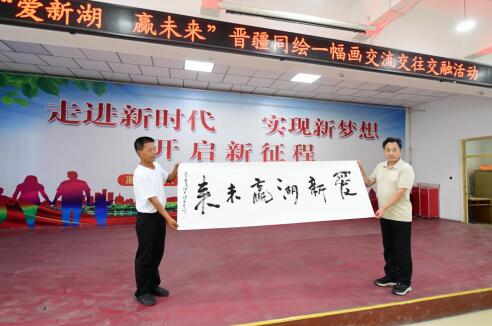 “爱新湖 赢未来”晋疆同绘一幅画交流交往交融活动
走进新时代 实现新梦想
开启新征程
愛新湖赢未来